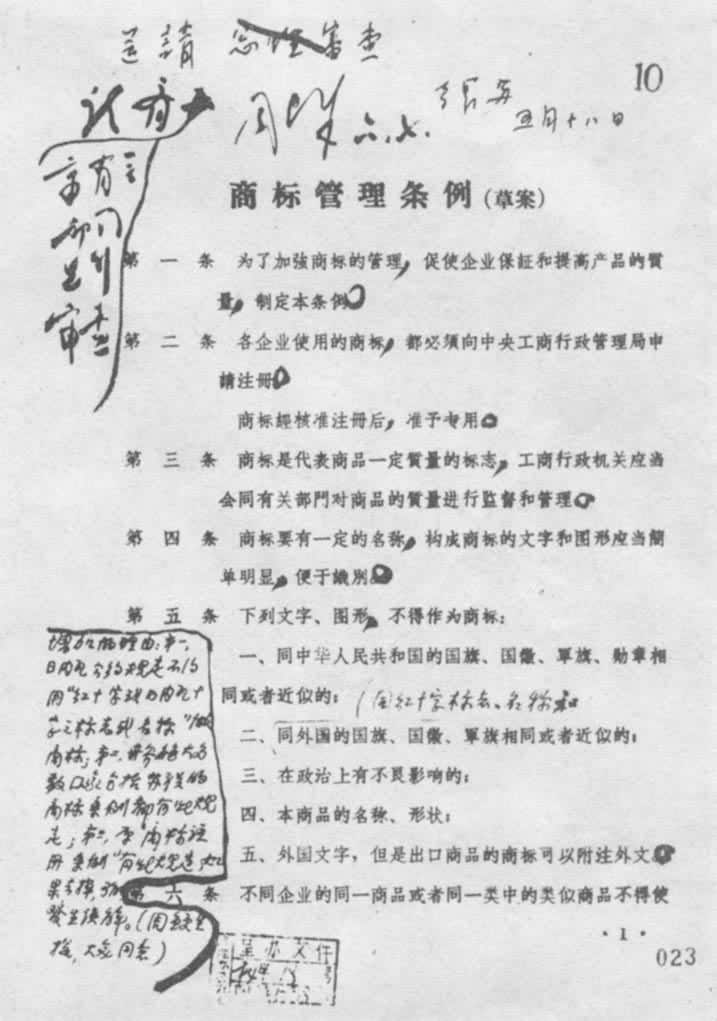 送請 总理 審查
10
周
六.七.
五月十八日
有
部门
審查
商标管理条例(草案)
第一条 为了加強商标的管理，促使企业保証和提高产品的質
量，制定本条例。
第二条 各企业使用的商标，都必須向中央工商行政管理局申
請注册。
商标經核准注册后，准予专用。
第三条 商标是代表商品一定質量的标志，工商行政机关应当
会同有关部門对商品的質量进行监督和管理。
第四条 商标要有一定的名称，构成商标的文字和图形应当簡
单明显，便于識別。
第五条 下列文字、图形，不得作为商标：
一、同中华人民共和国的国旗、国徽、軍旗、勋章相
同或者近似的；(同红十字标志、名称和
二、同外国的国旗、国徽、軍旗相同或者近似的；
三、在政治上有不良影响的；
四、本商品的名称、形状；
五、外国文字，但是出口商品的商标可以附注外文。
增加的理由：第一，
日内瓦公约规定不得
用"红十字或日内瓦十
字"之标志或名称"做
商标；第二，
数国家包括苏联的
商标条例都有此规
定；第三，商标注
册条例"有此规定，如
果
第六条 不同企业的同一商品或者同一类中的类似商品不得使
大家同意)
呈办文件
号
· 1 ·
023